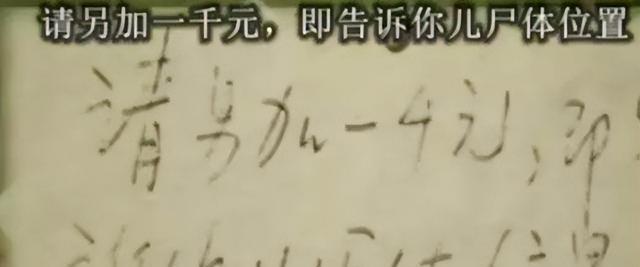 请另加一千元，即告诉你儿尸体位置
请另加一千元，即